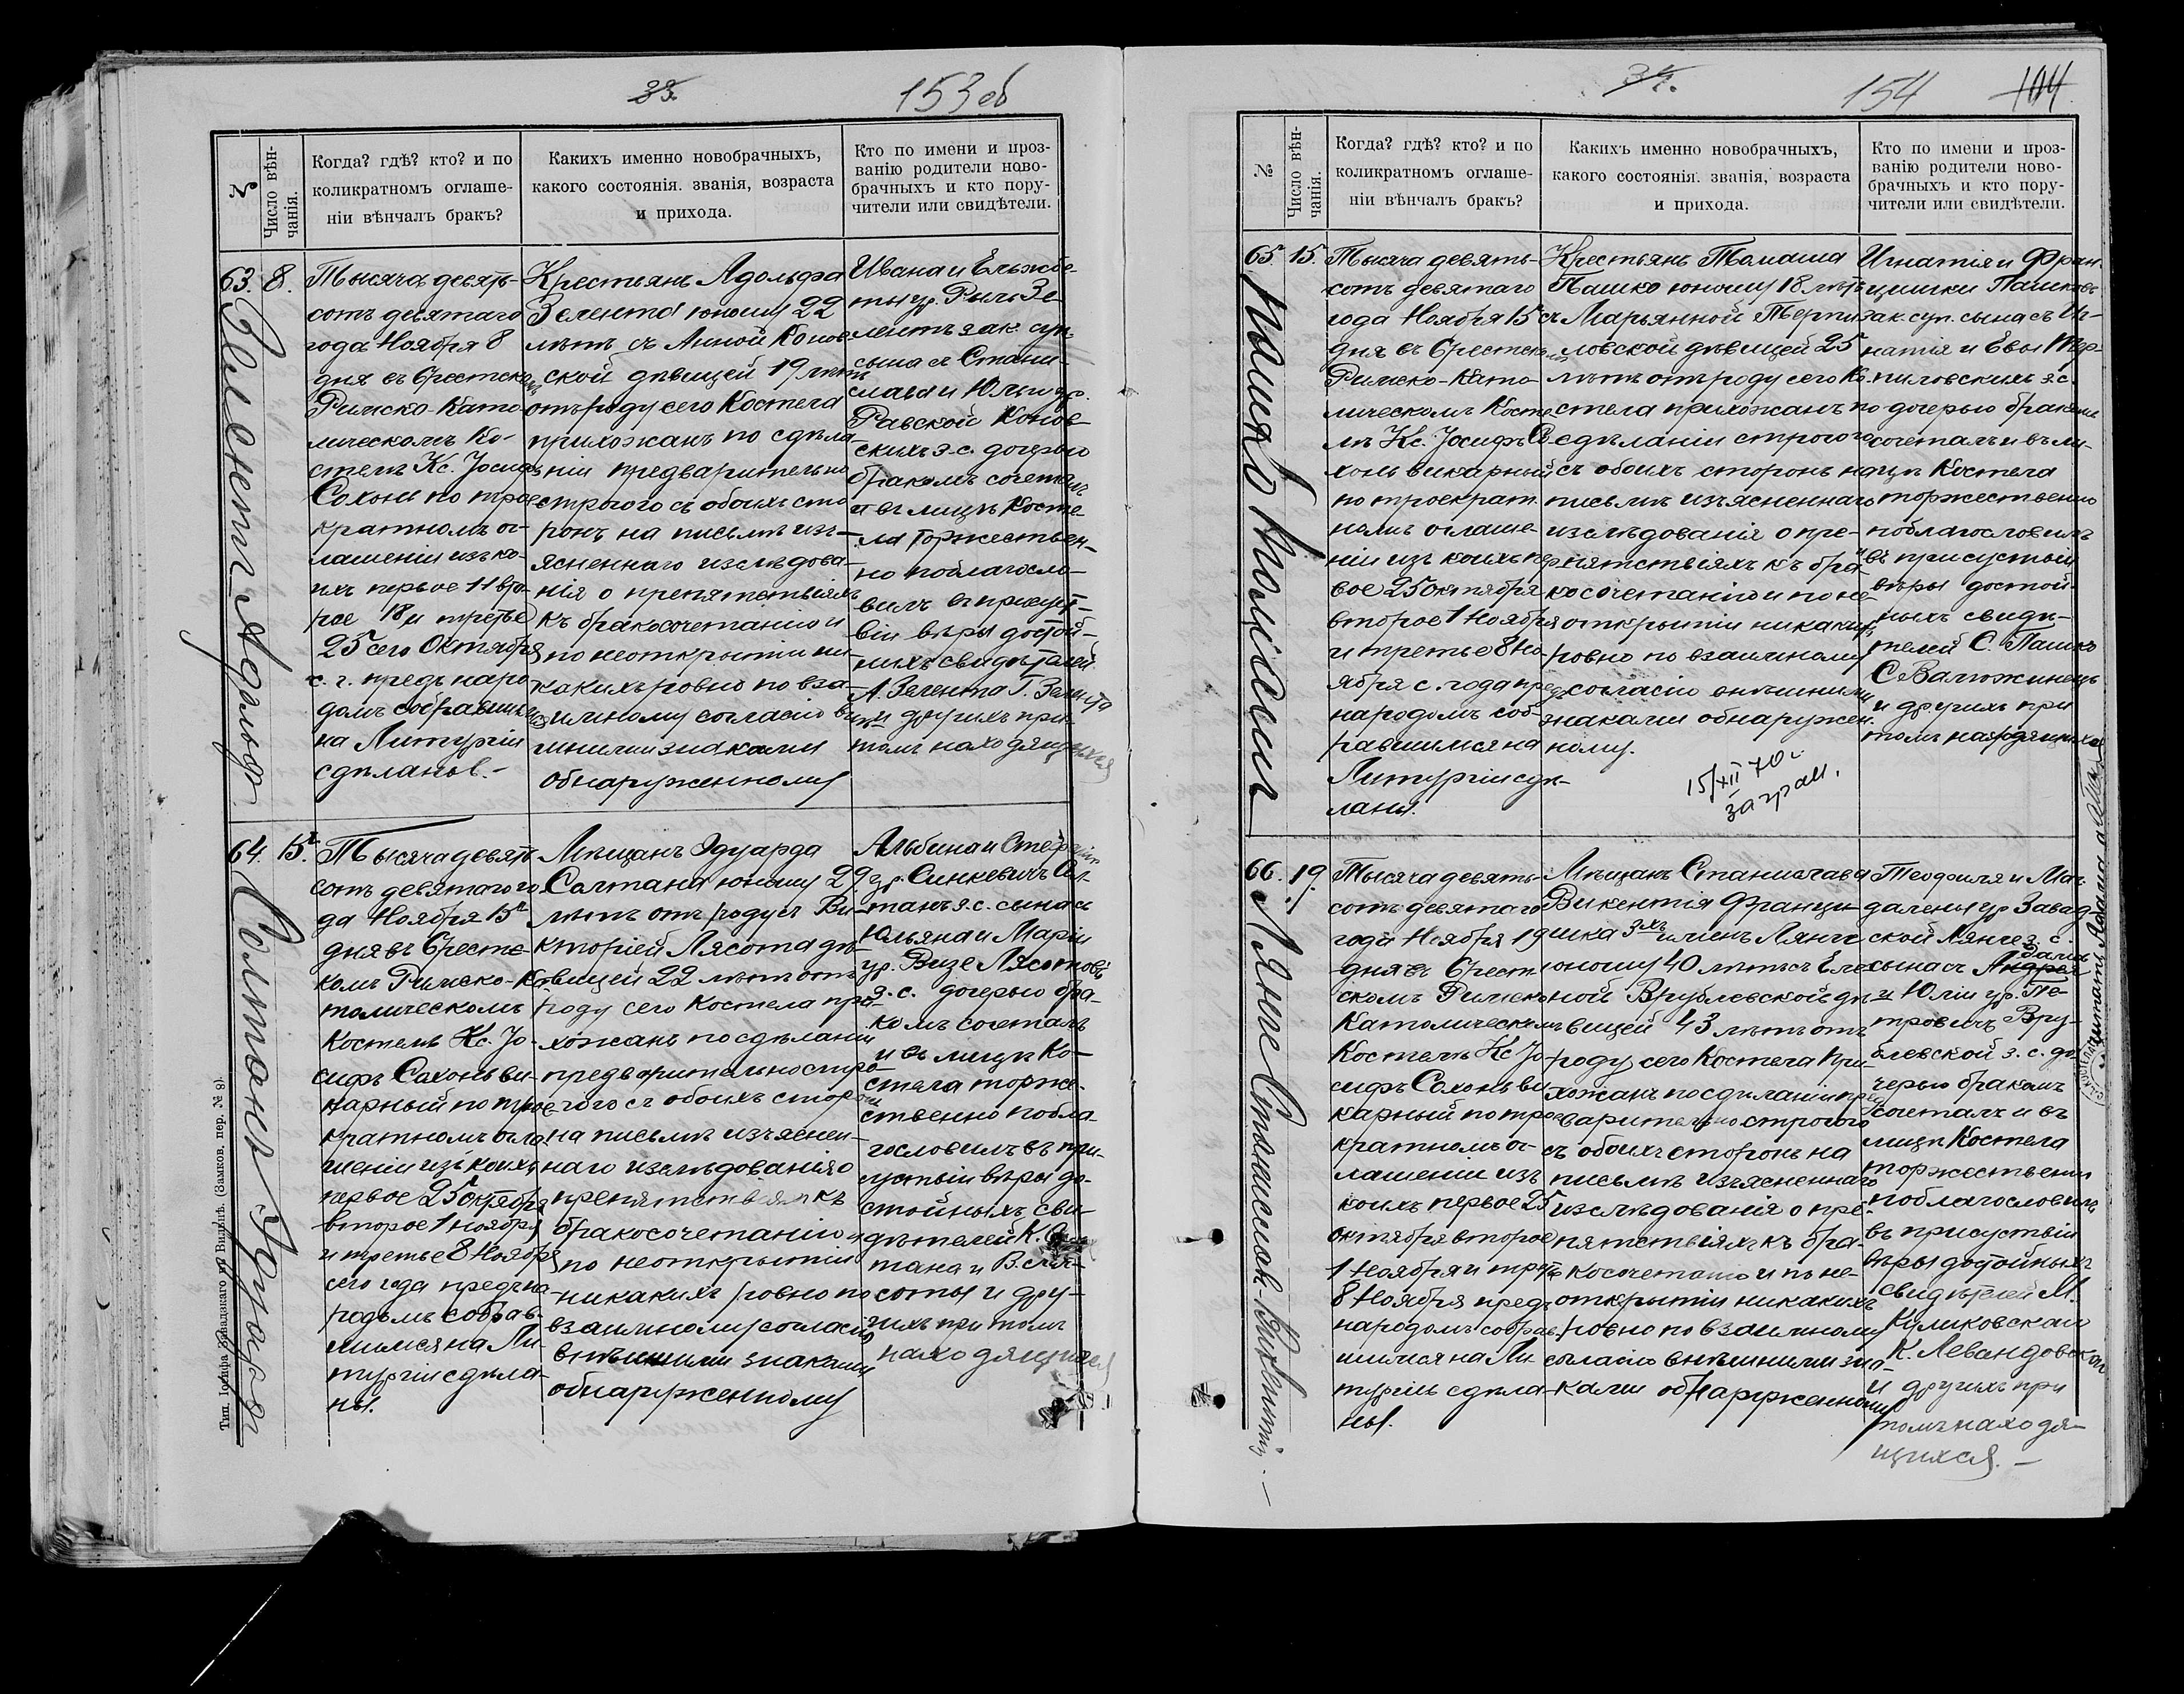 33.
153 об
№
Число вѣн-
чанія.
Когда? гдѣ? кто? и по
коликратномъ оглаше-
ніи вѣнчалъ бракъ?
Какихъ именно новобрачныхъ,
какого состоянія. званія, возраста
и прихода.
Кто по имени и проз-
ванію родители ново-
брачныхъ и кто пору-
чители или свидѣтели.
63. 8.
Зелент Адольф
Тысяча девять-
сотъ девятаго
года Ноября 8
дня въ Брестском
Римско-Като-
лическомъ Ко-
стелѣ Кс. Іосифъ
Сохонь по трое-
кратномъ ог-
лашеніи изъ ко-
ихъ первое 11 вто-
рое 18 и третье
25 сего Октября
с. г. предъ наро
домъ собравшим
на Литургіи
сдѣланы.-
Крестьянъ Адольфа
Зелента юношу 22
лѣтъ съ Анной Конов-
ской дѣвицей 19 лѣтъ
отъ роду сего Костела
прихожанъ по сдѣла-
ніи предварительно
строгого съ обоихъ сто
ронъ на письмѣ изъ-
ясненнаго изслѣдова-
нія о препятствіяхъ
къ бракосочетанію и
по неоткрытіи ни-
какихъ ровно по вза-
имному согласію внѣ-
шними знаками
обнаруженному
Ивана и Ельжбе-
ты ур. Рыль Зе-
лентъ зак. суп.
сына съ Стани-
слава и Юліи ур.
Равской Конов-
скихъ з. с. дочерью
бракомъ сочеталъ
и въ лицѣ Косте-
ла торжествен-
но поблагосло-
вилъ въ присут-
віи вѣры достой-
ныхъ свидѣтелей
А. Зелента Г. Зелента
и другихъ при
томъ находящихся
64. 15го
Солтанъ Эдуард
Тысяча девять
сотъ девятаго го
да Ноября 15го
дня въ Брестс-
комъ Римско-Ка-
толическомъ
Костелѣ Кс. Іо-
сифъ Сохонь ви-
карный по трое-
кратномъ огла-
шеніи изъ коихъ
первое 25 октября
второе 1 ноября
и третье 8 Ноября
сего года предъ на-
родомъ собрав-
шимся на Ли-
тургіи сдѣла-
ны.
Мѣщанъ Эдуарда
Солтана юношу 29
лѣтъ отъ роду съ Ви-
кторіей Лясота дѣ-
вицей 22 лѣтъ отъ
роду сего Костела при-
хожанъ по сдѣланіи
предварительно стро-
гого съ обоихъ сторонъ
на письмѣ изъяснен-
наго изслѣдованія о
препятствіяхъ къ
бракосочетанію и
по неоткрытіи
никакихъ ровно по
взаимному согласію
внѣшними знаками
обнаруженному
Альбина и Стефаніи
ур. Синкевичъ Сол-
танъ з. с. сына съ
Юльяна и Маріи
ур. Визе Лясотовъ
з. с. дочерью бра-
комъ сочеталъ
и въ лицѣ Ко-
стела торже-
ственно побла-
гословилъ въ при-
сутствіи вѣры до-
стойныхъ сви-
дѣтелей К.
тана и В. Ля-
соты и дру-
гихъ при томъ
находящихся
Тип. Іосифа Завадзкаго въ Вильнѣ. (Замков. пер. № 8).
34.
154
104
№
Число вѣн-
чанія.
Когда? гдѣ? кто? и по
коликратномъ оглаше-
ніи вѣнчалъ бракъ?
Какихъ именно новобрачныхъ,
какого состоянія. званія, возраста
и прихода.
Кто по имени и проз-
ванію родители ново-
брачныхъ и кто пору-
чители или свидѣтели.
65. 15.
Тысяча девять-
сотъ девятаго
года Ноября 15
дня въ Брестскомъ
Римско-Като-
лическомъ Косте-
лѣ Кс. Іосифъ Со-
хонь викарный
по троекрат-
номъ оглаше-
ніи изъ коихъ пер-
вое 25 октября
второе 1 Ноября
и третье 8 Но-
ября с. года предъ
народомъ соб-
равшимся на
Литургіи сдѣ-
ланы.
Крестьянъ Томаша
Пашко юношу 18 лѣтъ
съ Марьянной Терпи-
ловской дѣвицей 25
лѣтъ отъ роду сего Ко-
стела прихожанъ по
сдѣланіи строгого
съ обоихъ сторонъ на
письмѣ изъясненнаго
изслѣдованія о пре-
пятствіяхъ къ бра-
косочетанію и по не-
открытіи никакихъ
ровно по взаимному
согласію внѣшними
знаками обнаружен-
ному.
15/XII 70г
загран.
Игнатія и Фран-
цишки Пашковъ
зак. суп. сына съ Иг-
натія и Евы Тер-
пиловскихъ з. с.
дочерью бракомъ
сочеталъ и въ ли-
цѣ Костела
торжественно
поблагословилъ
въ присутствіи
вѣры достой-
ныхъ свидѣ-
телей С. Пашко
С. Валюжинецъ
и другихъ при
томъ находящихся
66. 19.
Лянге Станислав-Викентий.-
Тысяча девять-
сотъ девятаго
года Ноября 19
дня въ Брест-
скомъ Римско-
Католическомъ
Костелѣ Кс. Іо-
сифъ Сохонь ви-
карный по трое-
кратномъ ог-
лашеніи изъ
коихъ первое 25
октября второе
1 Ноября и третье
8 Ноября предъ
народомъ собрав-
шимся на Ли-
тургіи сдѣла-
ны.
Мѣщанъ Станислава
Викентія Франци-
шка 3хъ именъ Лянге
юношу 40 лѣтъ съ Еле-
ной Врублевской дѣ-
вицей 43 лѣтъ отъ
роду сего Костела при-
хожанъ по сдѣланіи пред-
варительно строгого
съ обоихъ сторонъ на
письмѣ изъясненнаго
изслѣдованія о пре-
пятствіяхъ къ бра-
косочетанію и по не-
открытіи никакихъ
ровно по взаимному
согласію внѣшними зна-
ками обнаруженному
Теофиля и Маг-
далены ур. Завад-
ской Лянге з. с.
сына съ Андрея
Адама
и Юліи ур. Пе-
тровичъ Вру-
блевской з. с. до-
черью бракомъ
сочеталъ и въ
лицѣ Костела
торжественно
поблагословилъ
въ присутствіи
вѣры достойныхъ
свидѣтелей М.
Куликовскаго
К. Левандовскаго
и другихъ при
томъ находя-
щихся.-
читать Адама